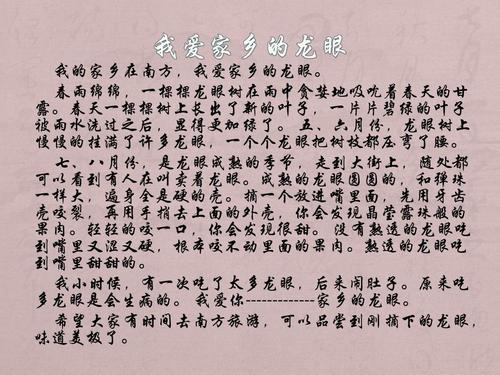 我爱家乡的龙眼
我的家乡在南方，我爱家乡的龙眼。
春雨绵绵，一棵棵龙眼树在雨中贪婪地吸吮着春天的甘
露。春天一棵棵树上长出了新的叶子，一片片碧绿的叶子
被雨水洗过之后，显得更加绿了。五、六月份，龙眼树上
慢慢的挂满了许多龙眼，一个个龙眼把树枝都压弯了腰。
七、八月份，是龙眼成熟的季节，走到大街上，随处都
可以看到有人在叫卖着龙眼。成熟的龙眼圆圆的，和弹珠
一样大，遍身全是硬的壳。摘一个放进嘴里面，先用牙齿
壳咬裂，再用手捎去上面的外壳，你会发现晶莹露珠般的
果肉。轻轻的咬一口，你会发现很甜。没有熟透的龙眼吃
到嘴里又涩又硬，根本咬不动里面的果肉。熟透的龙眼吃
到嘴里甜甜的。
我小时候，有一次吃了太多龙眼，后来闹肚子。原来吃
多龙眼是会生病的。我爱你-------------家乡的龙眼。
希望大家有时间去南方旅游，可以品尝到刚摘下的龙眼，
味道美极了。